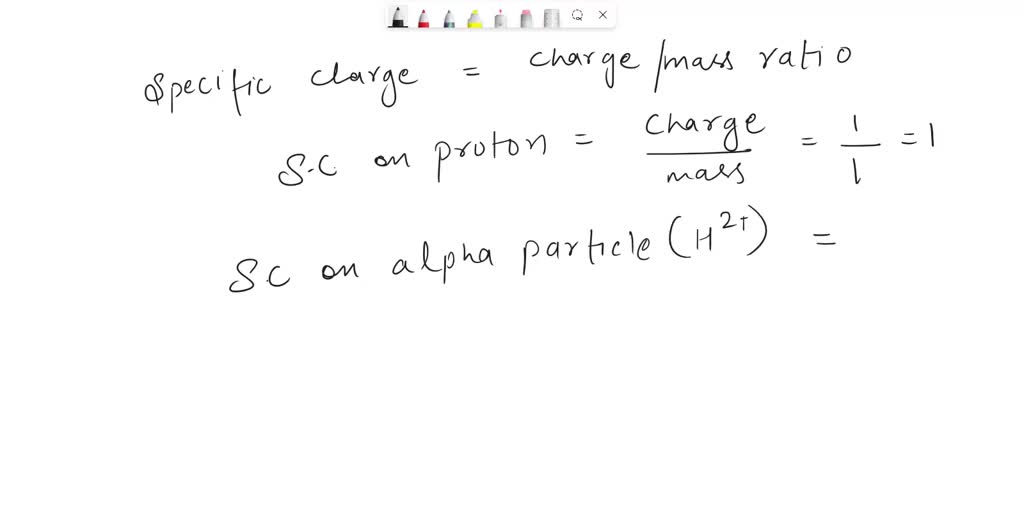 Specific charge = charge/mass ratio
S.C on proton = charge/mass = 1/1 = 1
S.C on alpha particle (H²⁺) =